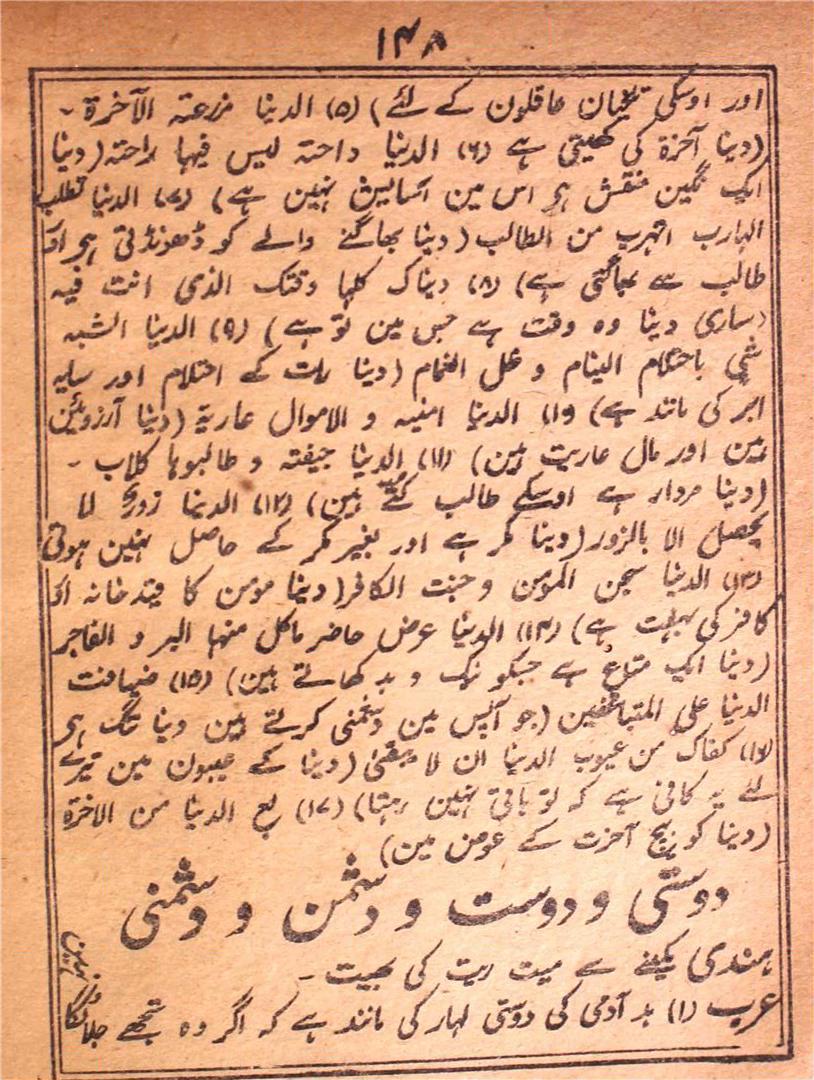 ۱۴۸
اور اوسکی تلخیان عاقلون کے لئے) (۵) الدینا مزرعتہ الآخرۃ ۔
(دینا آخرۃ کی کھیتی ہے (۶) الدنیا داحتہ لیس فیہا راحتہ (دینا
ایک نگین منقش ہر اس مین آسایش نہین ہے) (۷) الدنیا تطلب
الہارب اتہرب من الطالب (دینا بھاگنے والے کو ڈھونڈتی ہر اور
طالب سے بھاگتی ہے) (۸) دیناک کلہا وقتک الذی انت فیہ
(ساری دینا وہ وقت ہے جس مین تو ہے) (۹) الدنیا الشبہ
شی باحتلام الینام و ظل الغمام (دینا رات کے احتلام اور سایہ
ابر کی مانند ہے) (۱۰) الدنیا امنیہ و الاموال عاریۃ (دینا آرزوئین
ہین اور مال عاریت ہین) (۱۱) الدنیا جیفتہ و طالبوہا کلاب ۔
(دینا مردار ہے اوسکے طالب کتے ہین) (۱۲) الدنیا زور لا
یحصل الا بالزور (دینا مکر ہے اور بغیر مکر کے حاصل نہین ہوتی
(۱۳) الدنیا سجن المومن و جنت الکافر (دینا مومن کا قیدخانہ اور
کافر کی بہشت ہے) (۱۴) الدنیا عرض حاضر ماکل منہا البر و الفاجر
(دینا ایک متاع ہے جسکو نیک و بد کھاتے ہین) (۱۵) ضیافت
الدنیا علی المتباغضین (جو آپس مین دشمنی کرتے ہین دینا تنگ ہر
(۱۶) کفاک من عیوب الدنیا ان لا یبقیٰ (دینا کے عیبون مین تیرے
لئے یہ کافی ہے کہ تو باقی نہین رہتا) (۱۷) بع الدنیا من الاخرۃ
(دینا کو بیچ آخرت کے عوض مین)
دوستی و دوست و دشمن و دشمنی
ہندی یکھنے سے میت ریت کی بھیت ۔
عرب (۱) بد آدمی کی دوستی لہار کی مانند ہے کہ اگر وہ تجھے جلائگا نہین